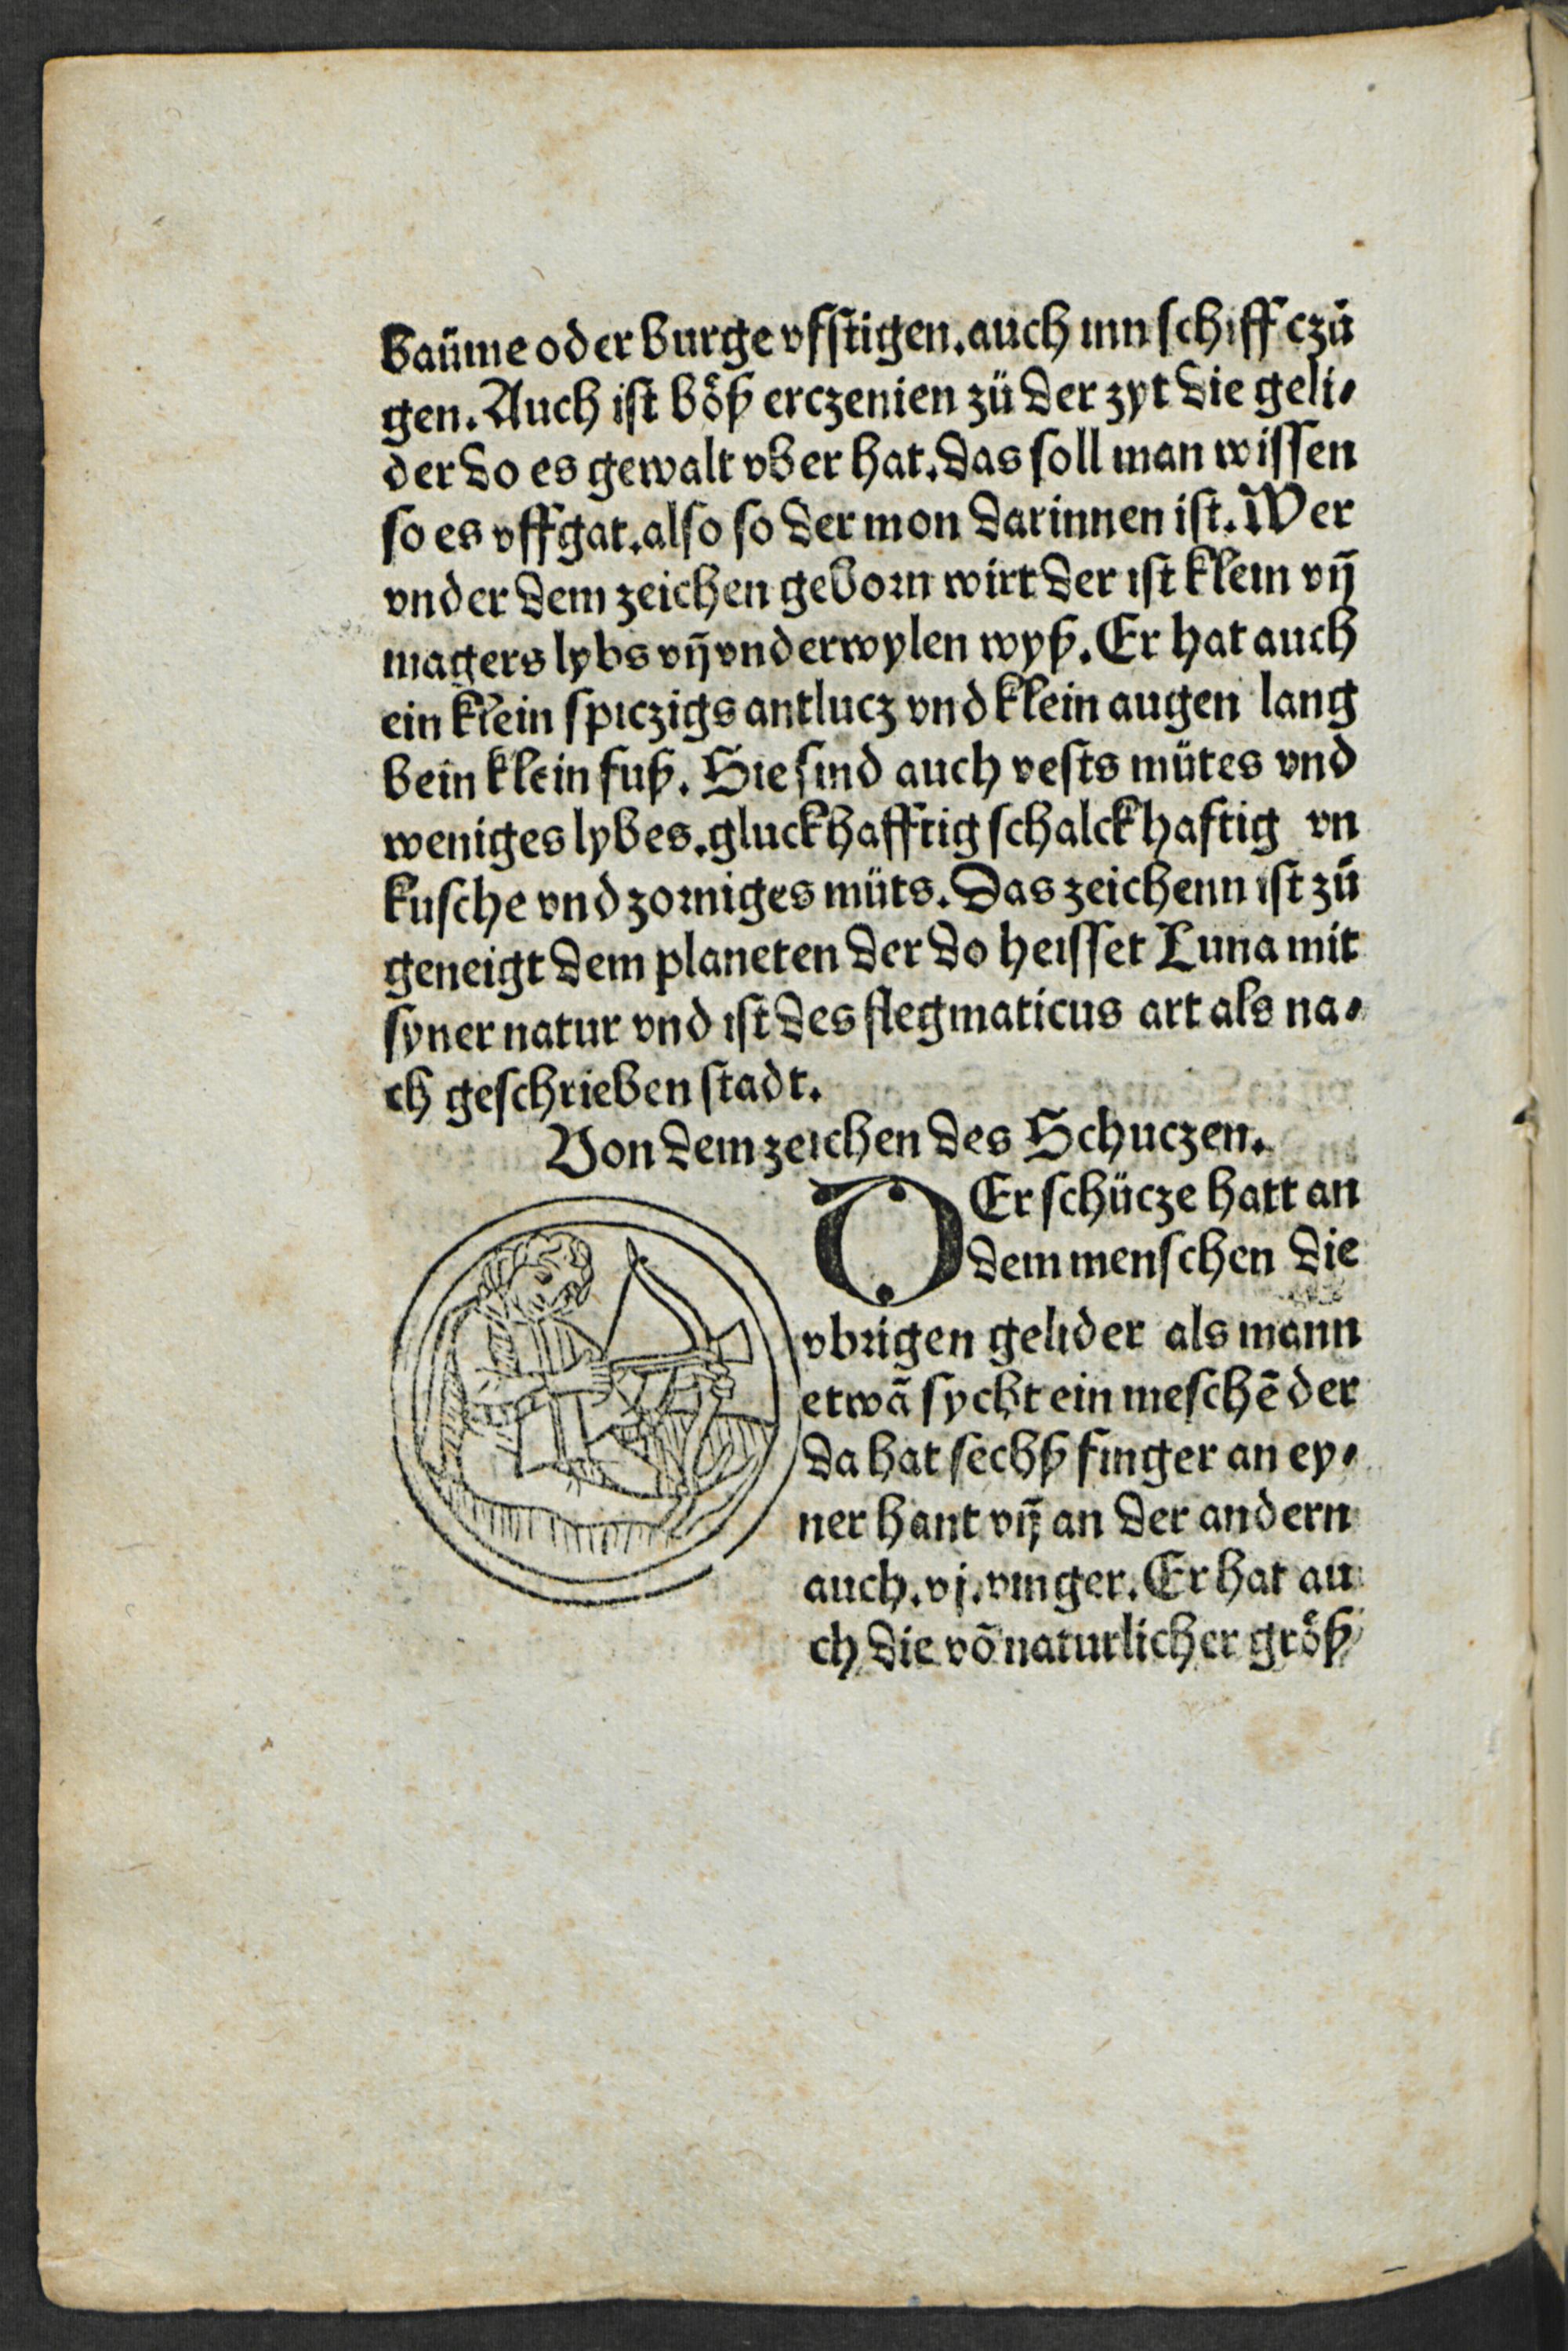 baüme oder burge vfstigen. auch inn schiff czů
gen. Auch ist böß erczenien zü der zyt die geli⸗
der do es gewalt vber hat. das soll man wissen
so es vffgat. also so der mon darinnen ist. Wer
vnder dem zeichen geborn wirt der ist klein vñ
magers lybs vñ vnderwylen wyß. Er hat auch
ein klein spiczigs antlucz vnd klein augen lang
bein klein fuß. Sie sind auch vests mütes vnd
weniges lybes. gluckhafftig schalckhaftig vn
kusche vnd zorniges müts. Das zeichenn ist zů
geneigt dem planeten der do heisset Luna mit
syner natur vnd ist des flegmaticus art als na⸗
ch geschrieben stadt.
Von dem zeichen des Schuczen.
DEr schücze hatt an
dem menschen die
vbrigen gelider als mann
etwā sycht ein meschē der
da hat sechß finger an ey⸗
ner hant vñ an der andern
auch. vj. vinger. Er hat au
ch die vō naturlicher größ